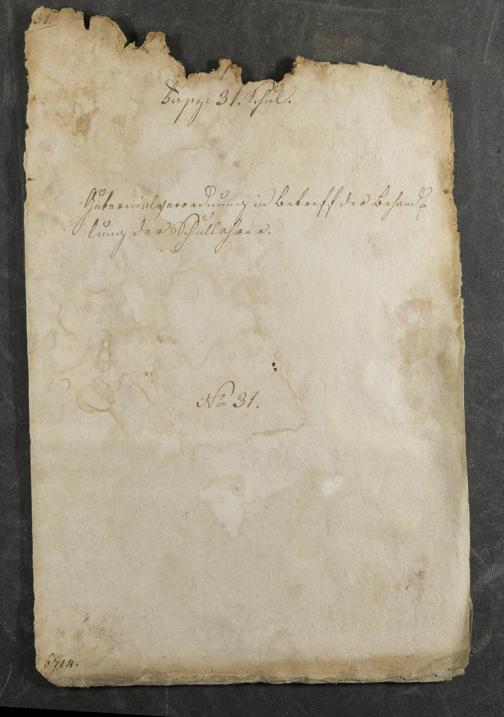 31.
Supp: 31. Schul.
Gubernialverordnung in Betreff der Behand-
lung der Schullehrer.
No 31.
6714.